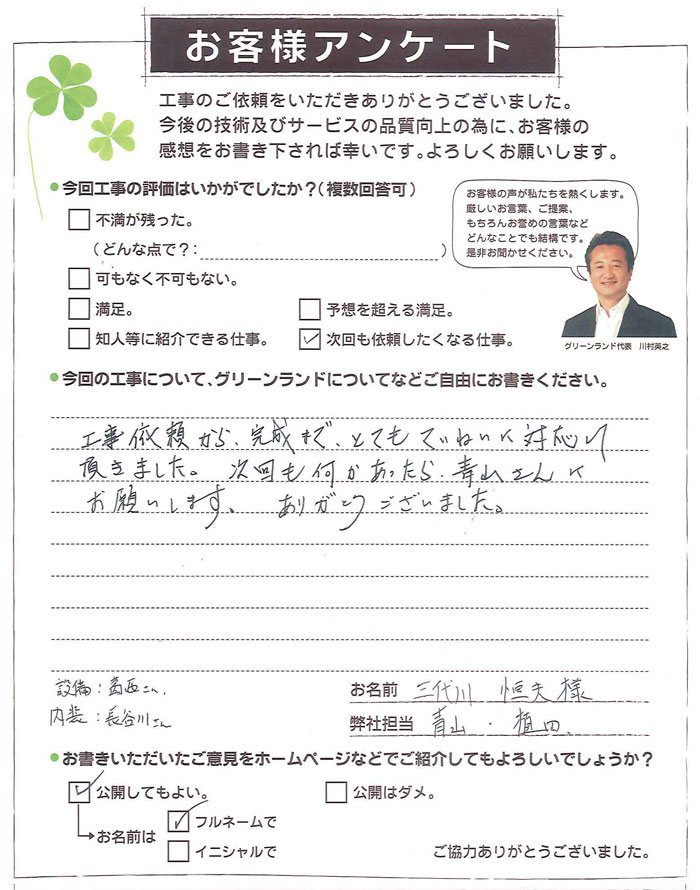 お客様アンケート
工事のご依頼をいただきありがとうございました。
今後の技術及びサービスの品質向上の為に、お客様の
感想をお書き下されば幸いです。よろしくお願いします。
今回工事の評価はいかがでしたか?(複数回答可)
不満が残った。
(どんな点で?: )
可もなく不可もない。
満足。
予想を超える満足。
知人等に紹介できる仕事。
次回も依頼したくなる仕事。
お客様の声が私たちを熱くします。
厳しいお言葉、ご提案、
もちろんお誉めの言葉など
どんなことでも結構です。
是非お聞かせください。
グリーンランド代表 川村英之
今回の工事について、グリーンランドについてなどご自由にお書きください。
工事依頼から、完成まで、とてもていねいに対応して
頂きました。次回も何かあったら、青山さんに
お願いします。ありがとうございました。
設備:葛西さん
内装:長谷川さん
お名前 三代川 恒夫様
弊社担当 青山・植田
お書きいただいたご意見をホームページなどでご紹介してもよろしいでしょうか?
公開してもよい。
公開はダメ。
お名前は
フルネームで
イニシャルで
ご協力ありがとうございました。